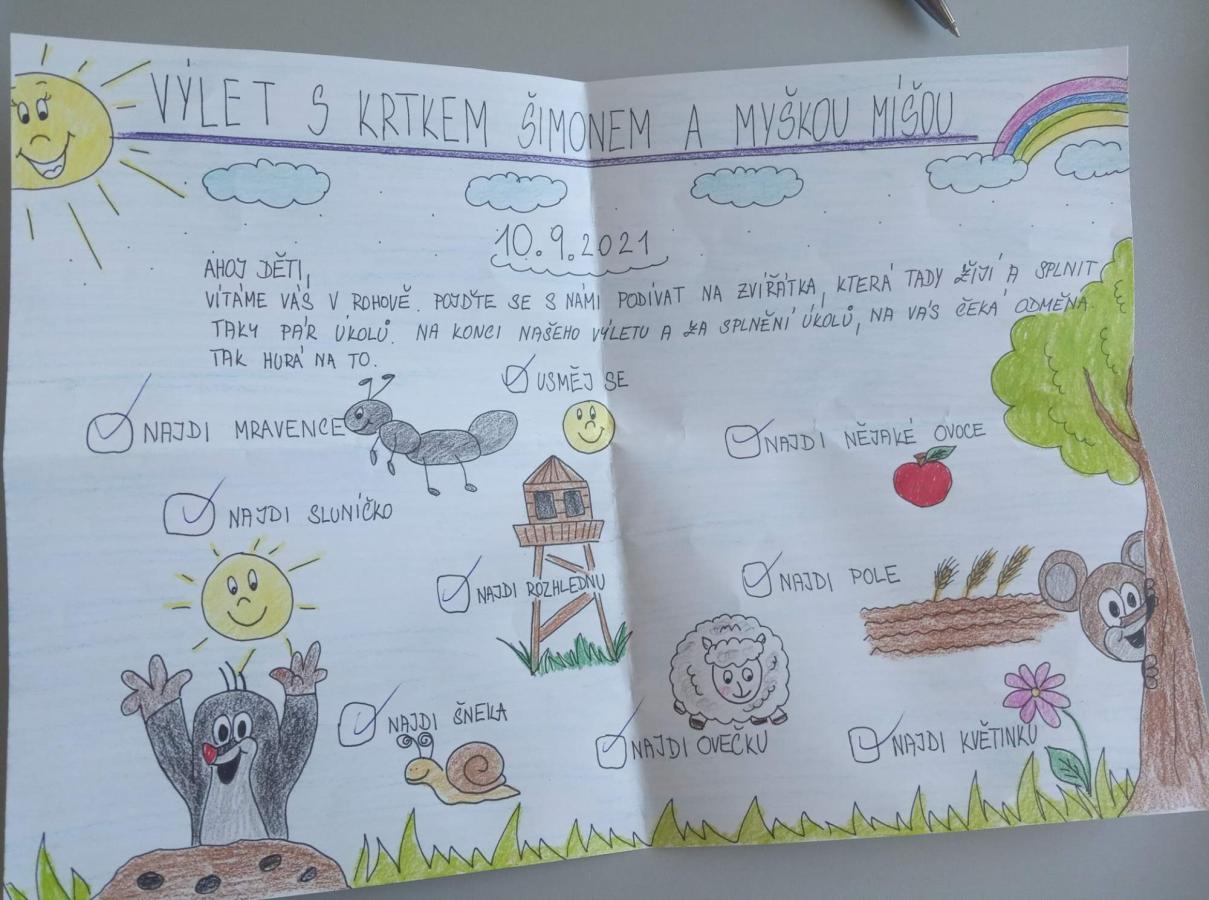 VÝLET S KRTKEM ŠIMONEM A MYŠKOU MÍŠOU
10.9.2021
AHOJ DĚTI,
VÍTÁME VÁS V ROHOVĚ. POJĎTE SE S NÁMI PODÍVAT NA ZVÍŘÁTKA, KTERÁ TADY ŽIJÍ A SPLNIT
TAKY PÁR ÚKOLŮ. NA KONCI NAŠEHO VÝLETU A ZA SPLNĚNÍ ÚKOLŮ, NA VÁS ČEKÁ ODMĚNA.
TAK HURÁ NA TO.
USMĚJ SE
NAJDI MRAVENCE
NAJDI NĚJAKÉ OVOCE
NAJDI SLUNÍČKO
NAJDI ROZHLEDNU
NAJDI POLE
NAJDI ŠNEKA
NAJDI OVEČKU
NAJDI KVĚTINKU